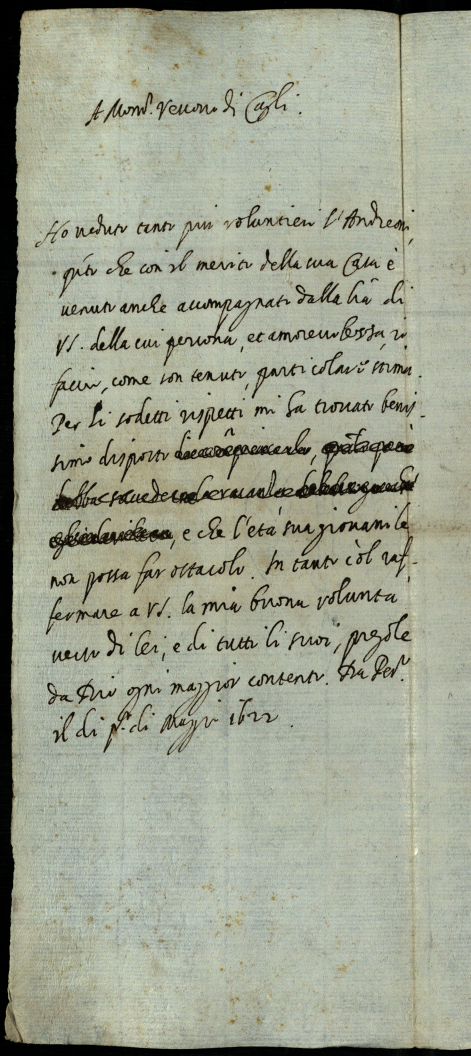 A Mons.r Vescovo di Cagli.
Ho veduto tanto più voluntieri l'Andreoni,
q.to che con il merito della sua Casa è
venuto anche accompagnato dalla l.ra di
VS. della cui persona, et amorevolessa, io
faccio, come son tenuto, particolar.e stima.
Per li sodetti rispetti mi ha trovato benis-
simo disposto
, e che l'età sua giovanile
non possa far ostacolo. In tanto col raf-
fermare a VS. la mia buona volontà
verso di lei, e di tutti li suoi, pregole
da Dio ogni maggior contento. Da Pes.o
il dì p.o di Maggio 1622.